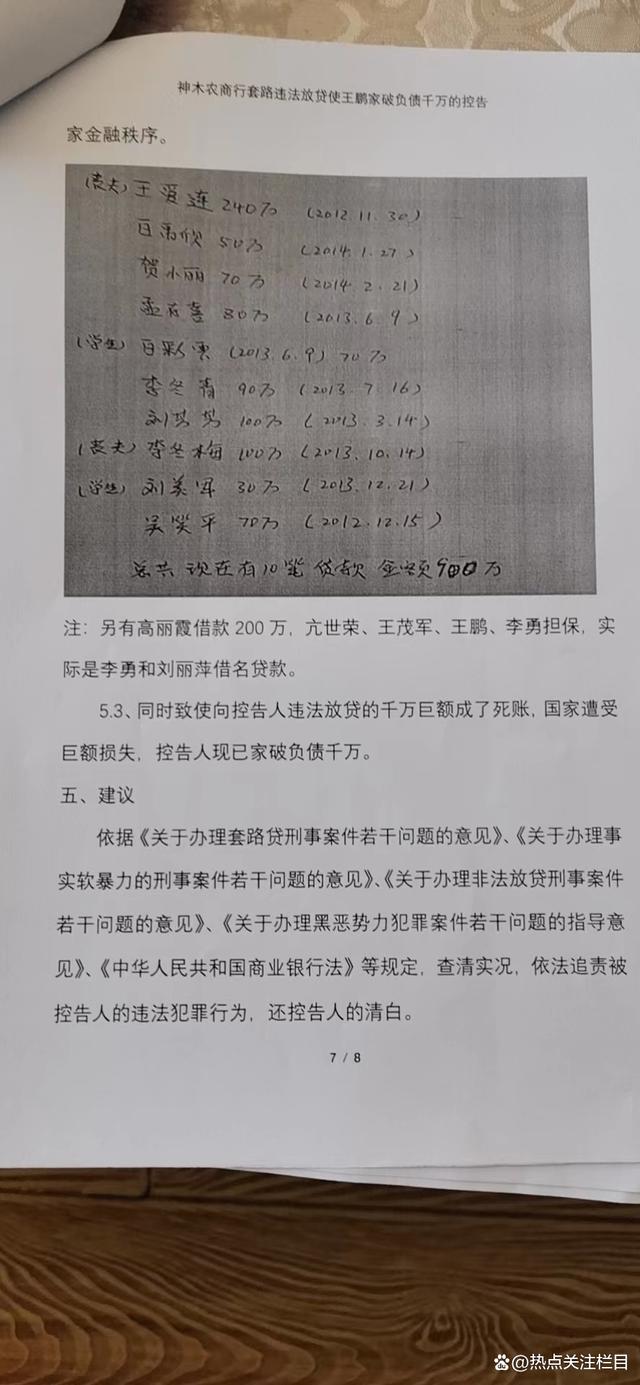 神木农商行套路违法放贷使王鹏家破负债千万的控告
家金融秩序。
(农夫) 王爱连 240万 (2012.11.30)
50万 (2014.1.27)
贺小丽 70万 (2014.2.21)
80万 (2013.6.9)
(学生) 白彩 (2013.6.9) 70万
李冬青 90万 (2013.7.16)
刘 100万 (2013.3.14)
李冬梅 100万 (2013.10.14)
(学生) 刘美 30万 (2013.12.21)
吴 平 70万 (2012.12.15)
总共 现在有10笔 贷款 金额900万
注：另有高丽霞借款 200 万，亢世荣、王茂军、王鹏、李勇担保，实
际是李勇和刘丽萍借名贷款。
5.3、同时致使向控告人违法放贷的千万巨额成了死账，国家遭受
巨额损失，控告人现已家破负债千万。
五、建议
依据《关于办理套路贷刑事案件若干问题的意见》、《关于办理事
实软暴力的刑事案件若干问题的意见》、《关于办理非法放贷刑事案件
若干问题的意见》、《关于办理黑恶势力犯罪案件若干问题的指导意
见》、《中华人民共和国商业银行法》等规定，查清实况，依法追责被
控告人的违法犯罪行为，还控告人的清白。
7 / 8
@热点关注栏目